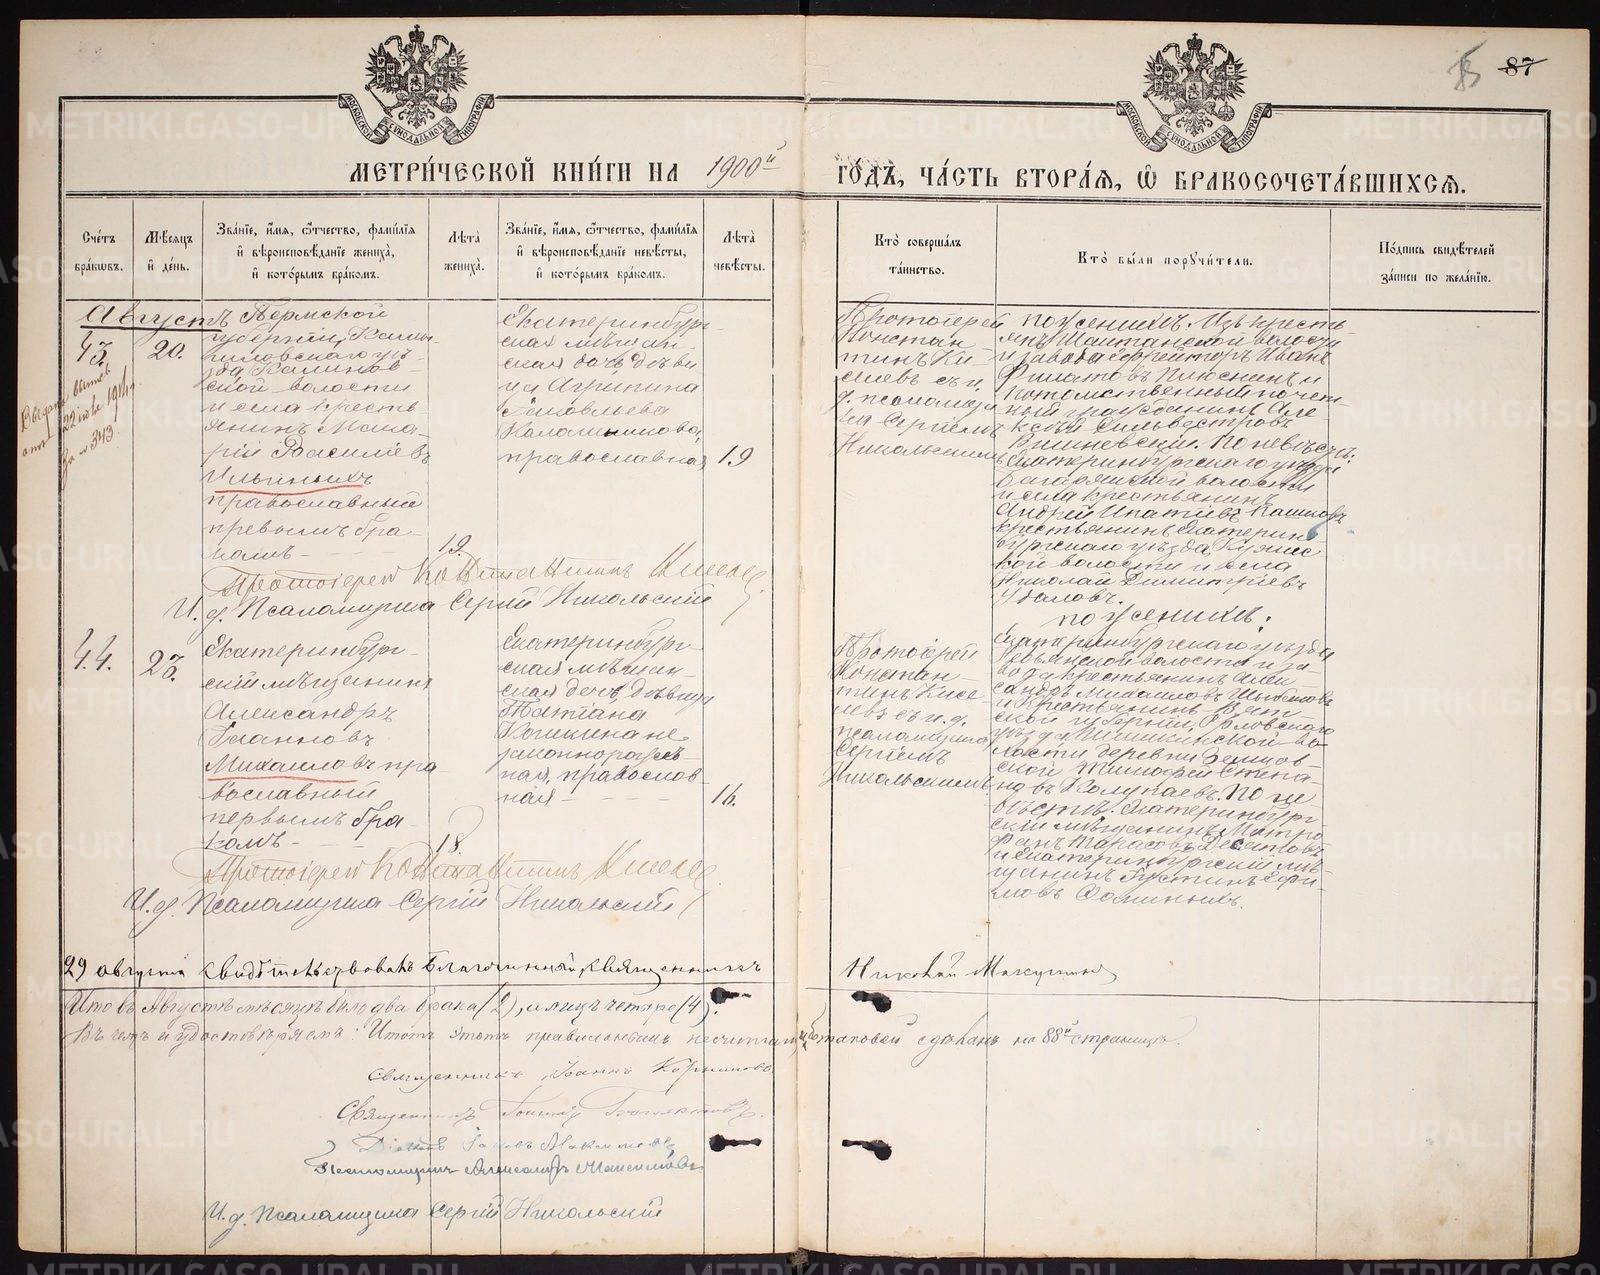 87
МОСКОВСКОЙ СѴНОДАЛЬНОЙ ТИПОГРАФІИ
МОСКОВСКОЙ СѴНОДАЛЬНОЙ ТИПОГРАФІИ
МЕТРИ́ЧЕСКОЙ КНИ́ГИ НА 1900й ГО́ДЪ, ЧА́СТЬ ВТОРА́Ѧ, Ѡ БРАКОСОЧЕТА́ВШИХСѦ.
Сче́тъ бра́кѡвъ.
Мѣ́сѧцъ и҆ де́нь.
Зва́нїе, и҆́мѧ, ѻ҆́тчество, фамѝлїѧ и҆ вѣроисповѣ́данїе жениха̀, и҆ кото́рымъ бра́комъ.
Лѣта̀ жениха̀.
Зва́нїе, и҆́мѧ, ѻ҆́тчество, фамѝлїѧ и҆ вѣроисповѣ́данїе невѣ́сты, и҆ кото́рымъ бра́комъ.
Лѣта̀ невѣ́сты.
Кто̀ соверша́лъ та́инство.
Кто̀ бы́ли порꙋчи́тели.
По́дпись свидѣ́телей за́писи по жела́нїю.
Августъ
43.
20.
Пермской
губерніи, Камы-
шловскаго уѣз-
да Калинов-
ской волости
и села кресть
янинъ Мака-
рій Василіевъ
Ильиныхъ
православный
первымъ бра-
комъ
19.
Екатеринбург-
ская мѣщан-
ская дочь дѣви
ца Агрипина
Іаковлева
Каламникова,
православная
19
Протоіерей
Констан-
тинъ Ки-
селевъ съ и.
д. псаломщи
ка Сергіемъ
Никольскимъ
по женихѣ: Изъ кресть-
янъ Шайтанской волости
и завода ефрейторъ Иванъ
Филатовъ Плюснинъ и
потомственный почет-
ный гражданинъ Але
ксѣй Сильвестровъ
Вишневскій. По невѣстѣ:
Екатеринбургскаго уѣзда
Багарякской волости
и села крестьянинъ
Андрей Ипатіевъ Кашинъ
крестьянинъ Екатерин
бургскаго уѣзда, Куяшс
кой волости и села
Николай Димитріевъ
Удаловъ.
Выдана выпись
22 іюня 1911 г.
за № 343
Протоіерей Константинъ Киселевъ
И. д. Псаломщика Сергій Никольскій
44.
23.
Екатеринбург-
скій мѣщанинъ
Александръ
Іоанновъ
Михаиловъ пра-
вославный
первымъ бра-
комъ
18.
Екатеринбург-
ская мѣщан-
ская дочь, дѣвица
Татіана
Кошкина не
законнорожден-
ная, православ-
ная
16.
Протоіерей
Констан-
тинъ Кисе-
левъ съ и. д.
псаломщика
Сергіемъ
Никольскимъ
по женихѣ:
Екатеринбургскаго уѣзда
волости и за
вода крестьянинъ Алек
сандръ Михаиловъ
и крестьянинъ Вят-
ской губерніи, Орловскаго
уѣзда Шишкинской во-
лости деревни
Тимофей Степа-
новъ Колупаевъ. По не
вѣстѣ: Екатеринбург-
скій мѣщанинъ Митро
фанъ Тарасовъ Десятовъ
и Екатеринбургскій мѣ-
щанинъ Густинъ Ефи-
мовъ Фоминыхъ.
Протоіерей Константинъ Киселевъ
И. д. Псаломщика Сергій Никольскій
29 августа свидѣтельствовалъ Благочинный, Священникъ Николай
Итого въ Августѣ мѣсяцѣ было два брака (2), и лицъ четыре (4).
Въ чемъ и удостовѣряемъ: Итогъ этотъ правильнымъ не считать, таковой сдѣланъ на 88й страницѣ.
Священникъ Іоаннъ
Священникъ
Діаконъ
Псаломщикъ Александръ Максимовъ
И. д. Псаломщика Сергій Никольскій
METRIKI.GASO-URAL.RU